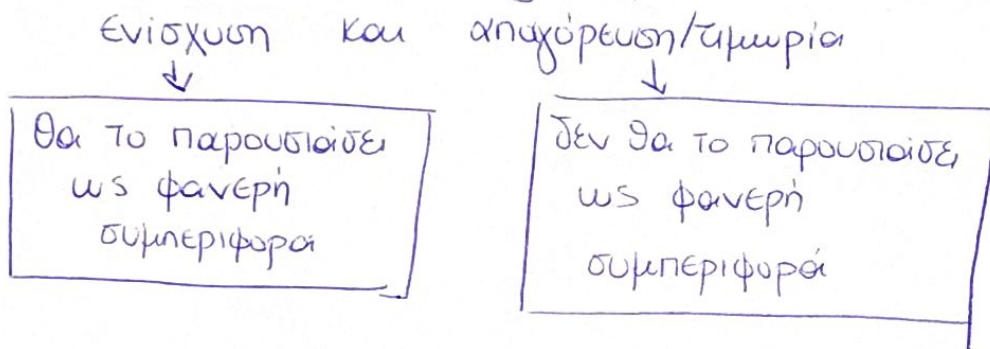 ενίσχυση και απαγόρευση/τιμωρία
θα το παρουσιάσει
ως φανερή
συμπεριφορά
δεν θα το παρουσιάσει
ως φανερή
συμπεριφορά